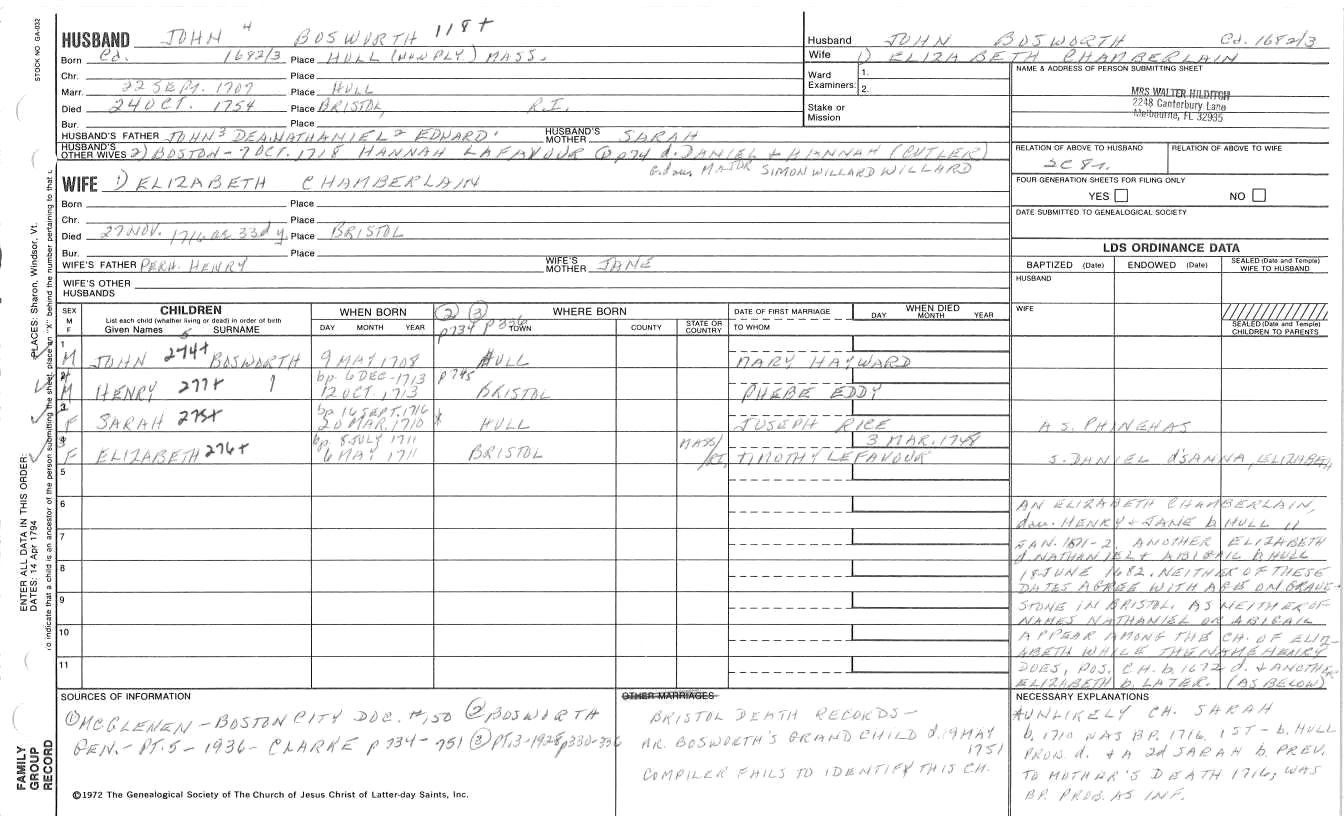 STOCK NO. GA-032
HUSBAND JOHN 4 BOSWORTH 118+
Born Cd. 1682/3 Place HULL (NOW PLY) MASS.
Chr. Place
Marr. 22 SEPT. 1707 Place HULL
Died 24 OCT. 1754 Place BRISTOL, R.I.
Bur. Place
HUSBAND'S FATHER JOHN 3 DEA. NATHANIEL 2 EDWARD 1 HUSBAND'S MOTHER SARAH
HUSBAND'S OTHER WIVES 2) BOSTON - 7 OCT. 1718 HANNAH LAFAVOUR @ p74 d. DANIEL & HANNAH (CUTLER)
G. dau MAJOR SIMON WILLARD WILLARD
Husband JOHN BOSWORTH Cd. 1682/3
Wife 1) ELIZABETH CHAMBERLAIN
Ward Examiners: 1.
2.
Stake or Mission
NAME & ADDRESS OF PERSON SUBMITTING SHEET
MRS WALTER HILDITCH
2248 Canterbury Lane
Melbourne, FL 32935
RELATION OF ABOVE TO HUSBAND RELATION OF ABOVE TO WIFE
2C 8r.
FOUR GENERATION SHEETS FOR FILING ONLY
YES NO
DATE SUBMITTED TO GENEALOGICAL SOCIETY
WIFE 1) ELIZABETH CHAMBERLAIN
Born Place
Chr. Place
Died 27 NOV. 1716 ae 33d y. Place BRISTOL
Bur. Place
WIFE'S FATHER PERH. HENRY WIFE'S MOTHER JANE
WIFE'S OTHER HUSBANDS
LDS ORDINANCE DATA
BAPTIZED (Date) ENDOWED (Date) SEALED (Date and Temple) WIFE TO HUSBAND
HUSBAND
WIFE
SEALED (Date and Temple) CHILDREN TO PARENTS
SEX M F
CHILDREN
List each child (whether living or dead) in order of birth
Given Names SURNAME
WHEN BORN
DAY MONTH YEAR
2 3 WHERE BORN
p734 p336 TOWN COUNTY STATE OR COUNTRY
DATE OF FIRST MARRIAGE
TO WHOM
WHEN DIED
DAY MONTH YEAR
1 M JOHN 274+ BOSWORTH 9 MAY 1708 HULL MARY HAYWARD
2 4 M HENRY 277+ bp. 6 DEC - 1713 12 OCT. 1713 p745 BRISTOL PHEBE EDDY
3 F SARAH 275+ bp. 16 SEPT. 1716 20 MAR. 1710 * HULL JOSEPH RICE A S. PHINEHAS
4 F ELIZABETH 276+ bp. 8 JULY 1711 6 MAY 1711 BRISTOL MASS/RI. TIMOTHY LEFAVOUR 3 MAR. 1748 S. DANIEL d'SANNA, ELIZABETH
5
6
7
8
9
10
11
AN ELIZABETH CHAMBERLAIN,
dau. HENRY & JANE b HULL 11
JAN. 1671-2. ANOTHER ELIZABETH
d. NATHANIEL & ABIGAIL b HULL
18 JUNE 1682. NEITHER OF THESE
DATES AGREE WITH AGE ON GRAVE-
STONE IN BRISTOL. AS NEITHER OF
NAMES NATHANIEL OR ABIGAIL
APPEAR AMONG THE CH. OF ELIZ-
ABETH WHILE THE NAME HENRY
DOES, POS. CH. b. 1672 d. & ANOTHER
ELIZABETH b. LATER. (AS BELOW)
SOURCES OF INFORMATION
1 MCGLENEN - BOSTON CITY DOC. #150 2 BOSWORTH
GEN. - PT. 5 - 1936 - CLARKE p 734 - 751 3 PT. 3 - 1928 p330-336
OTHER MARRIAGES
BRISTOL DEATH RECORDS -
MR. BOSWORTH'S GRAND CHILD d. 19 MAY
1751
COMPILER FAILS TO IDENTIFY THIS CH.
NECESSARY EXPLANATIONS
*UNLIKELY CH. SARAH
b. 1710 WAS BP. 1716. 1ST - b. HULL
PROB. d. & A 2d SARAH b PREV.
TO MOTHER'S DEATH 1716, WAS
BP. PROB. AS INF.
©1972 The Genealogical Society of The Church of Jesus Christ of Latter-day Saints, Inc.
FAMILY GROUP RECORD
ENTER ALL DATA IN THIS ORDER:
DATES: 14 Apr 1794
PLACES: Sharon, Windsor, Vt.
to indicate that a child is an ancestor of the person submitting the sheet, place an "X" behind the number pertaining to that